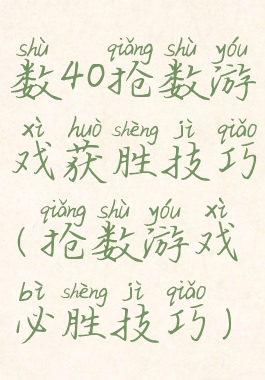 shù qiǎng shù yóu
数40抢数游
xì huò shèng jì qiǎo
戏获胜技巧
qiǎng shù yóu xì
(抢数游戏
bì shèng jì qiǎo
必胜技巧)